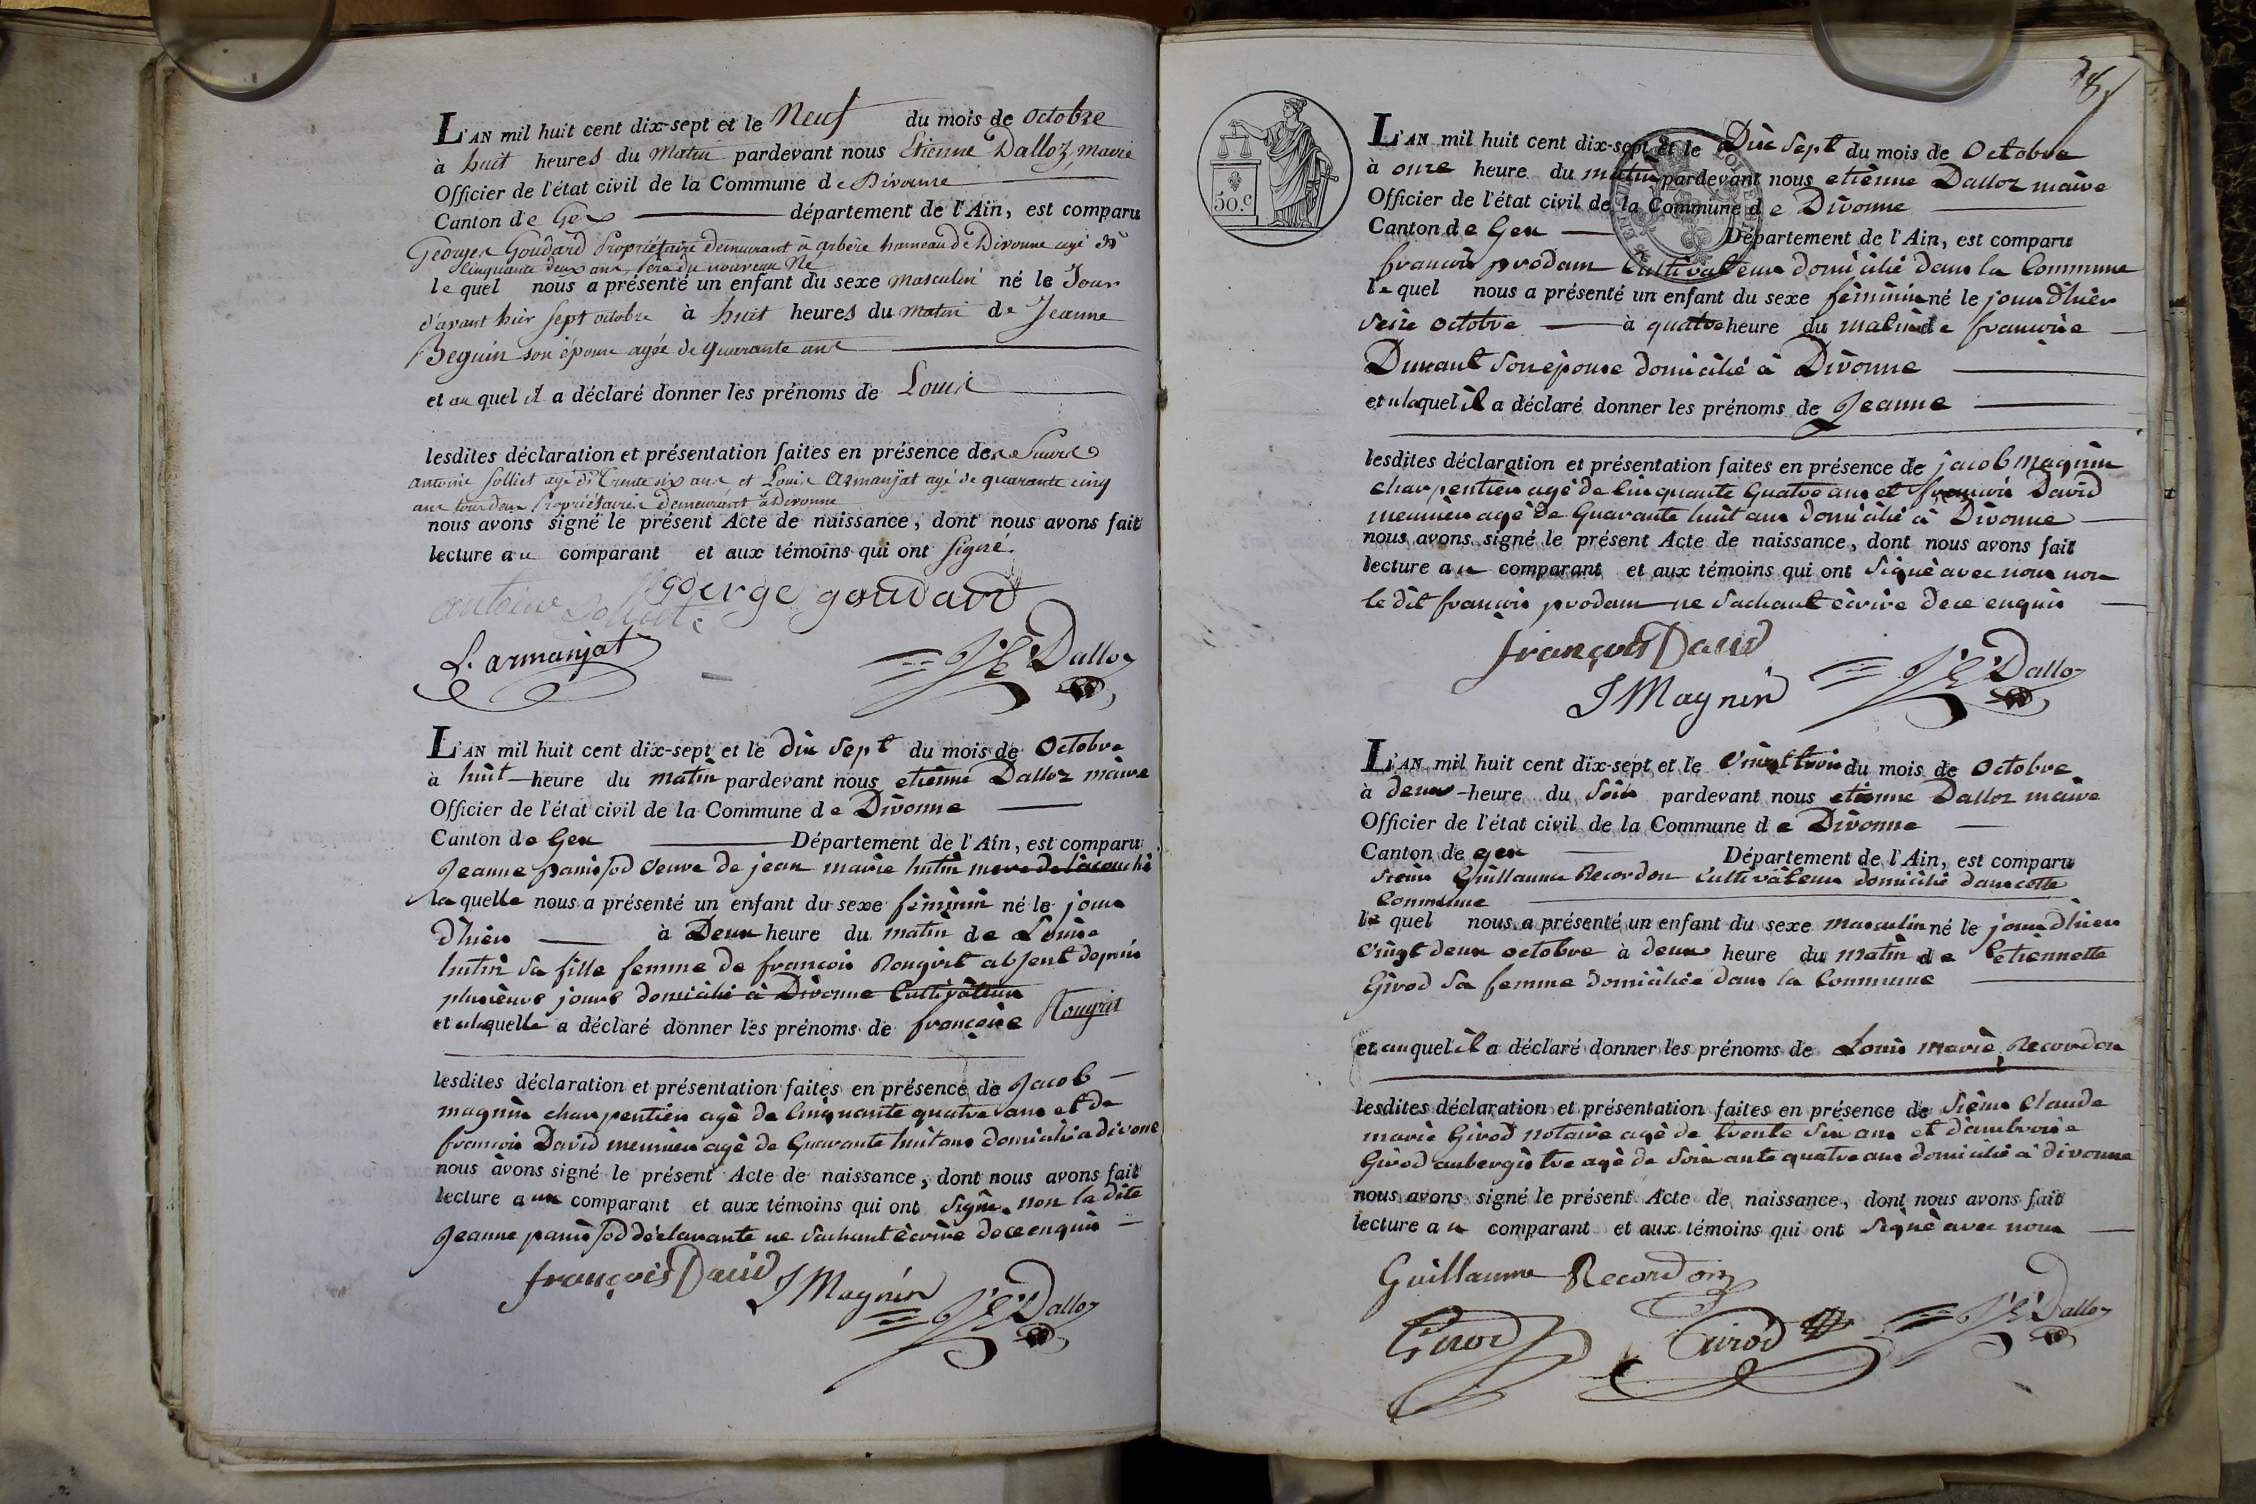 L'AN mil huit cent dix-sept et le Neuf du mois de octobre
à huit heures du Matin pardevant nous Etienne Dalloz, maire
Officier de l'état civil de la Commune de Divonne
Canton de Gex département de l'Ain, est comparu
Georges Goudard Propriétaire demeurant à arbère hameau de Divonne agé de
Cinquante deux ans, Père du nouveau Né
le quel nous a présenté un enfant du sexe masculin né le Jour
d'avant hier sept octobre à huit heures du matin de Jeanne
Beguin son épouse agée de quarante ans
et au quel il a déclaré donner les prénoms de Louis
lesdites déclaration et présentation faites en présence des Sieurs
antoine Solliet agé de Trente six ans et Louis Armanjat agé de quarante cinq
ans tous deux Propriétaires demeurant à Divonne
nous avons signé le présent Acte de naissance, dont nous avons fait
lecture au comparant et aux témoins qui ont signé.
goerge goudard
antoine Solliet
L. armanjat
J E Dalloz
L'AN mil huit cent dix-sept et le dix sept du mois de Octobre
à huit heure du matin pardevant nous etiènne Dalloz maire
Officier de l'état civil de la Commune de Divonne
Canton de Gex Département de l'Ain, est comparu
Jeanne panissod veuve de jean marie hutin mere de lacouché
la quelle nous a présenté un enfant du sexe féminin né le jour
d'hièr à Deux heure du matin de Louise
hutin sa fille femme de françois Rougrit absent depuis
plusieurs jours domicilié à Divonne Cultivateur
et alaquelle a déclaré donner les prénoms de françoise Rougrit
lesdites déclaration et présentation faites en présence de Jacob
magnin charpentier agé de Cinquante quatre ans et de
françois David meunier agé de Quarante huit ans domicilié a divonne
nous avons signé le présent Acte de naissance, dont nous avons fait
lecture au comparant et aux témoins qui ont signé non la dite
Jeanne panissod déclarante ne sachant écrire de ce enquis
françois David
J Magnin
J E Dalloz
78
50.c
L'AN mil huit cent dix-sept et le Dix sept du mois de Octobre
à onze heure du matin pardevant nous etiènne Dalloz maire
Officier de l'état civil de la Commune de Divonne
Canton de Gex Département de l'Ain, est comparu
francois prodam Cultivateur domicilié dans la Commune
le quel nous a présenté un enfant du sexe féminin né le jour d'hièr
seize octobre à quatre heure du matin de francoise
Dunant son épouse domicilié à Divonne
et alaquel il a déclaré donner les prénoms de Jeanne
lesdites déclaration et présentation faites en présence de jacob magnin
charpentièr agé de Cinquante Quatre ans et francois David
meunièr agé de Quarante huit ans domicilié à Divonne
nous avons signé le présent Acte de naissance, dont nous avons fait
lecture au comparant et aux témoins qui ont signé avec nous non
le dit françois prodam ne sachant écrire de ce enquis
françois David
J Magnin
J E Dalloz
L'AN mil huit cent dix-sept et le vingt trois du mois de Octobre
à deux heure du soir pardevant nous etienne Dalloz maire
Officier de l'état civil de la Commune de Divonne
Canton de gex Département de l'Ain, est comparu
Sieur Guillaume Recordon Cultivateur domicilié dans cette
Commune
le quel nous a présenté un enfant du sexe masculin né le jour d'hièr
vingt deux octobre à deux heure du matin de etiennette
Girod sa femme domiciliée dans la Commune
et auquel il a déclaré donner les prénoms de Louis marie Recordon
lesdites déclaration et présentation faites en présence de Sieur Claude
marie Girod notaire agé de trente six ans et d'ambroise
Girod aubergiste agé de soixante quatre ans domicilié à divonne
nous avons signé le présent Acte de naissance, dont nous avons fait
lecture au comparant et aux témoins qui ont signé avec nous
Guillaume Recordon
Girod
Girod
J E Dalloz